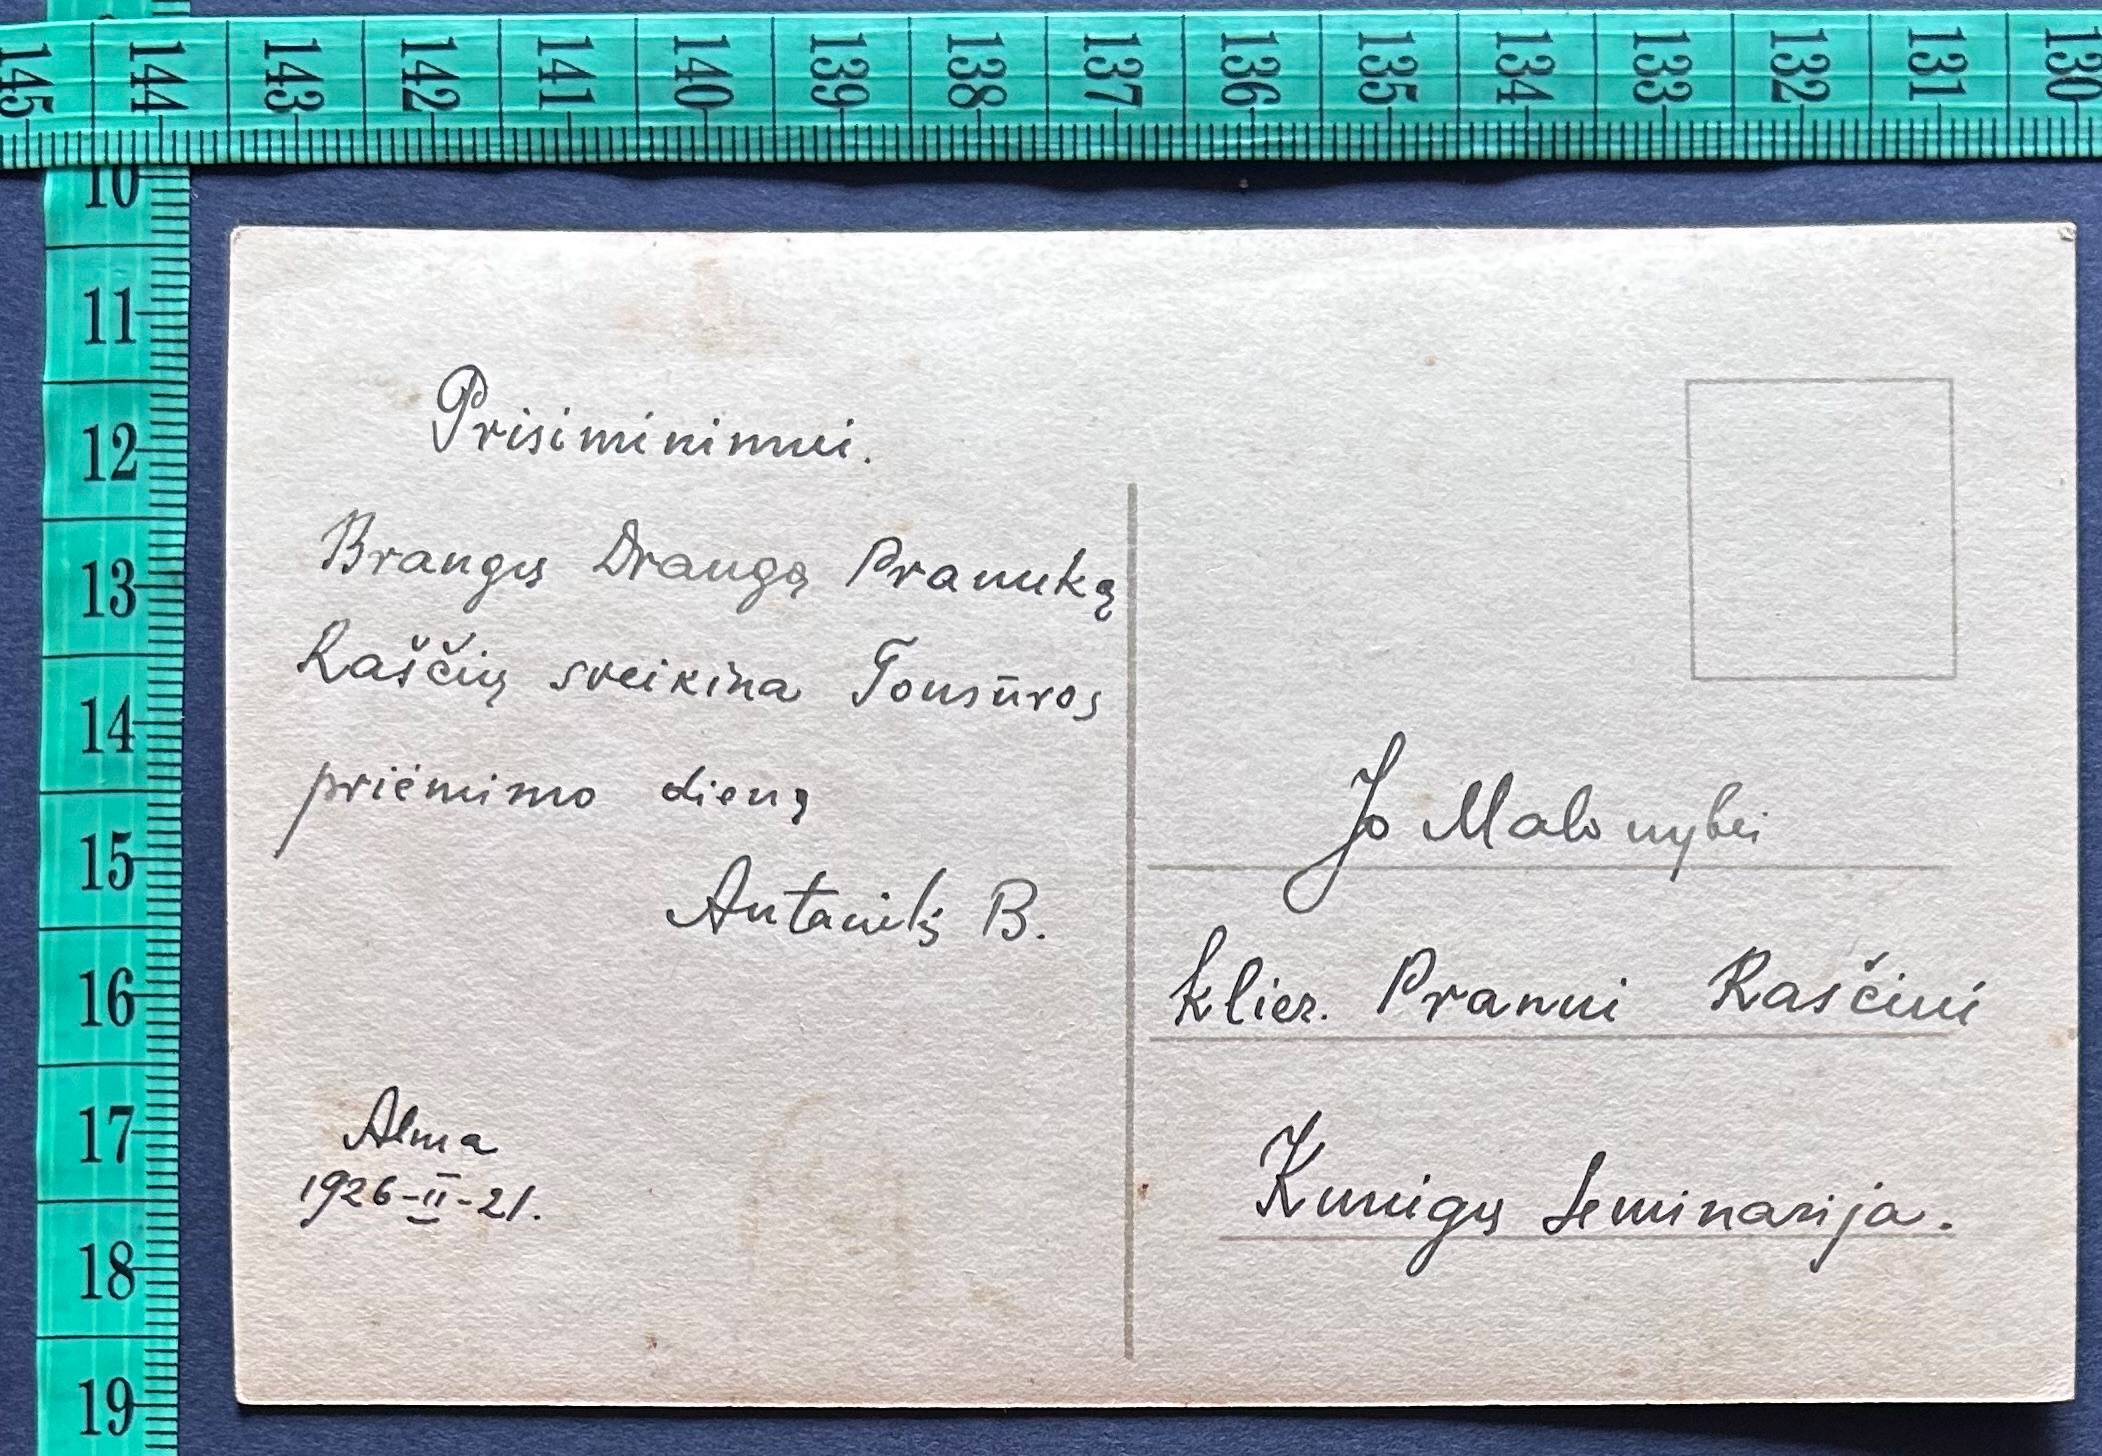 145 144 143 142 141 140 139 138 137 136 135 134 133 132 131 130
10
11
12
13
14
15
16
17
18
19
Prisiminimui.
Brangų Draugą Pranuką
Raščių sveikina Tonsūros
priėmimo dieną
Antanuks B.
Alma
1926-II-21.
Jo Malonybei
klier. Pranui Raščiui
Kunigų Seminarija.